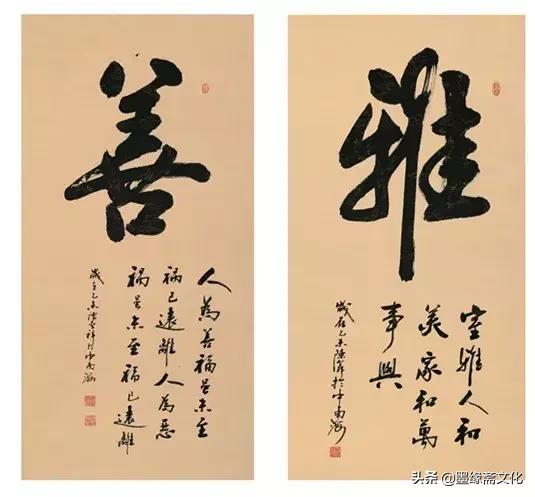 善
人為善福虽未至
祸已遠離人為恶
祸虽未至福已遠離
歲在乙未 於中南海
雅
室雅人和
美家和萬
事興
歲在乙未 於中南海
头条 @墨缘斋文化